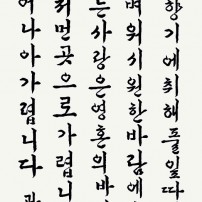 향기에취해풀잎따
위시원한바람에
는사랑은영혼의바
먼곳으로가렵니
어나아가렵니다